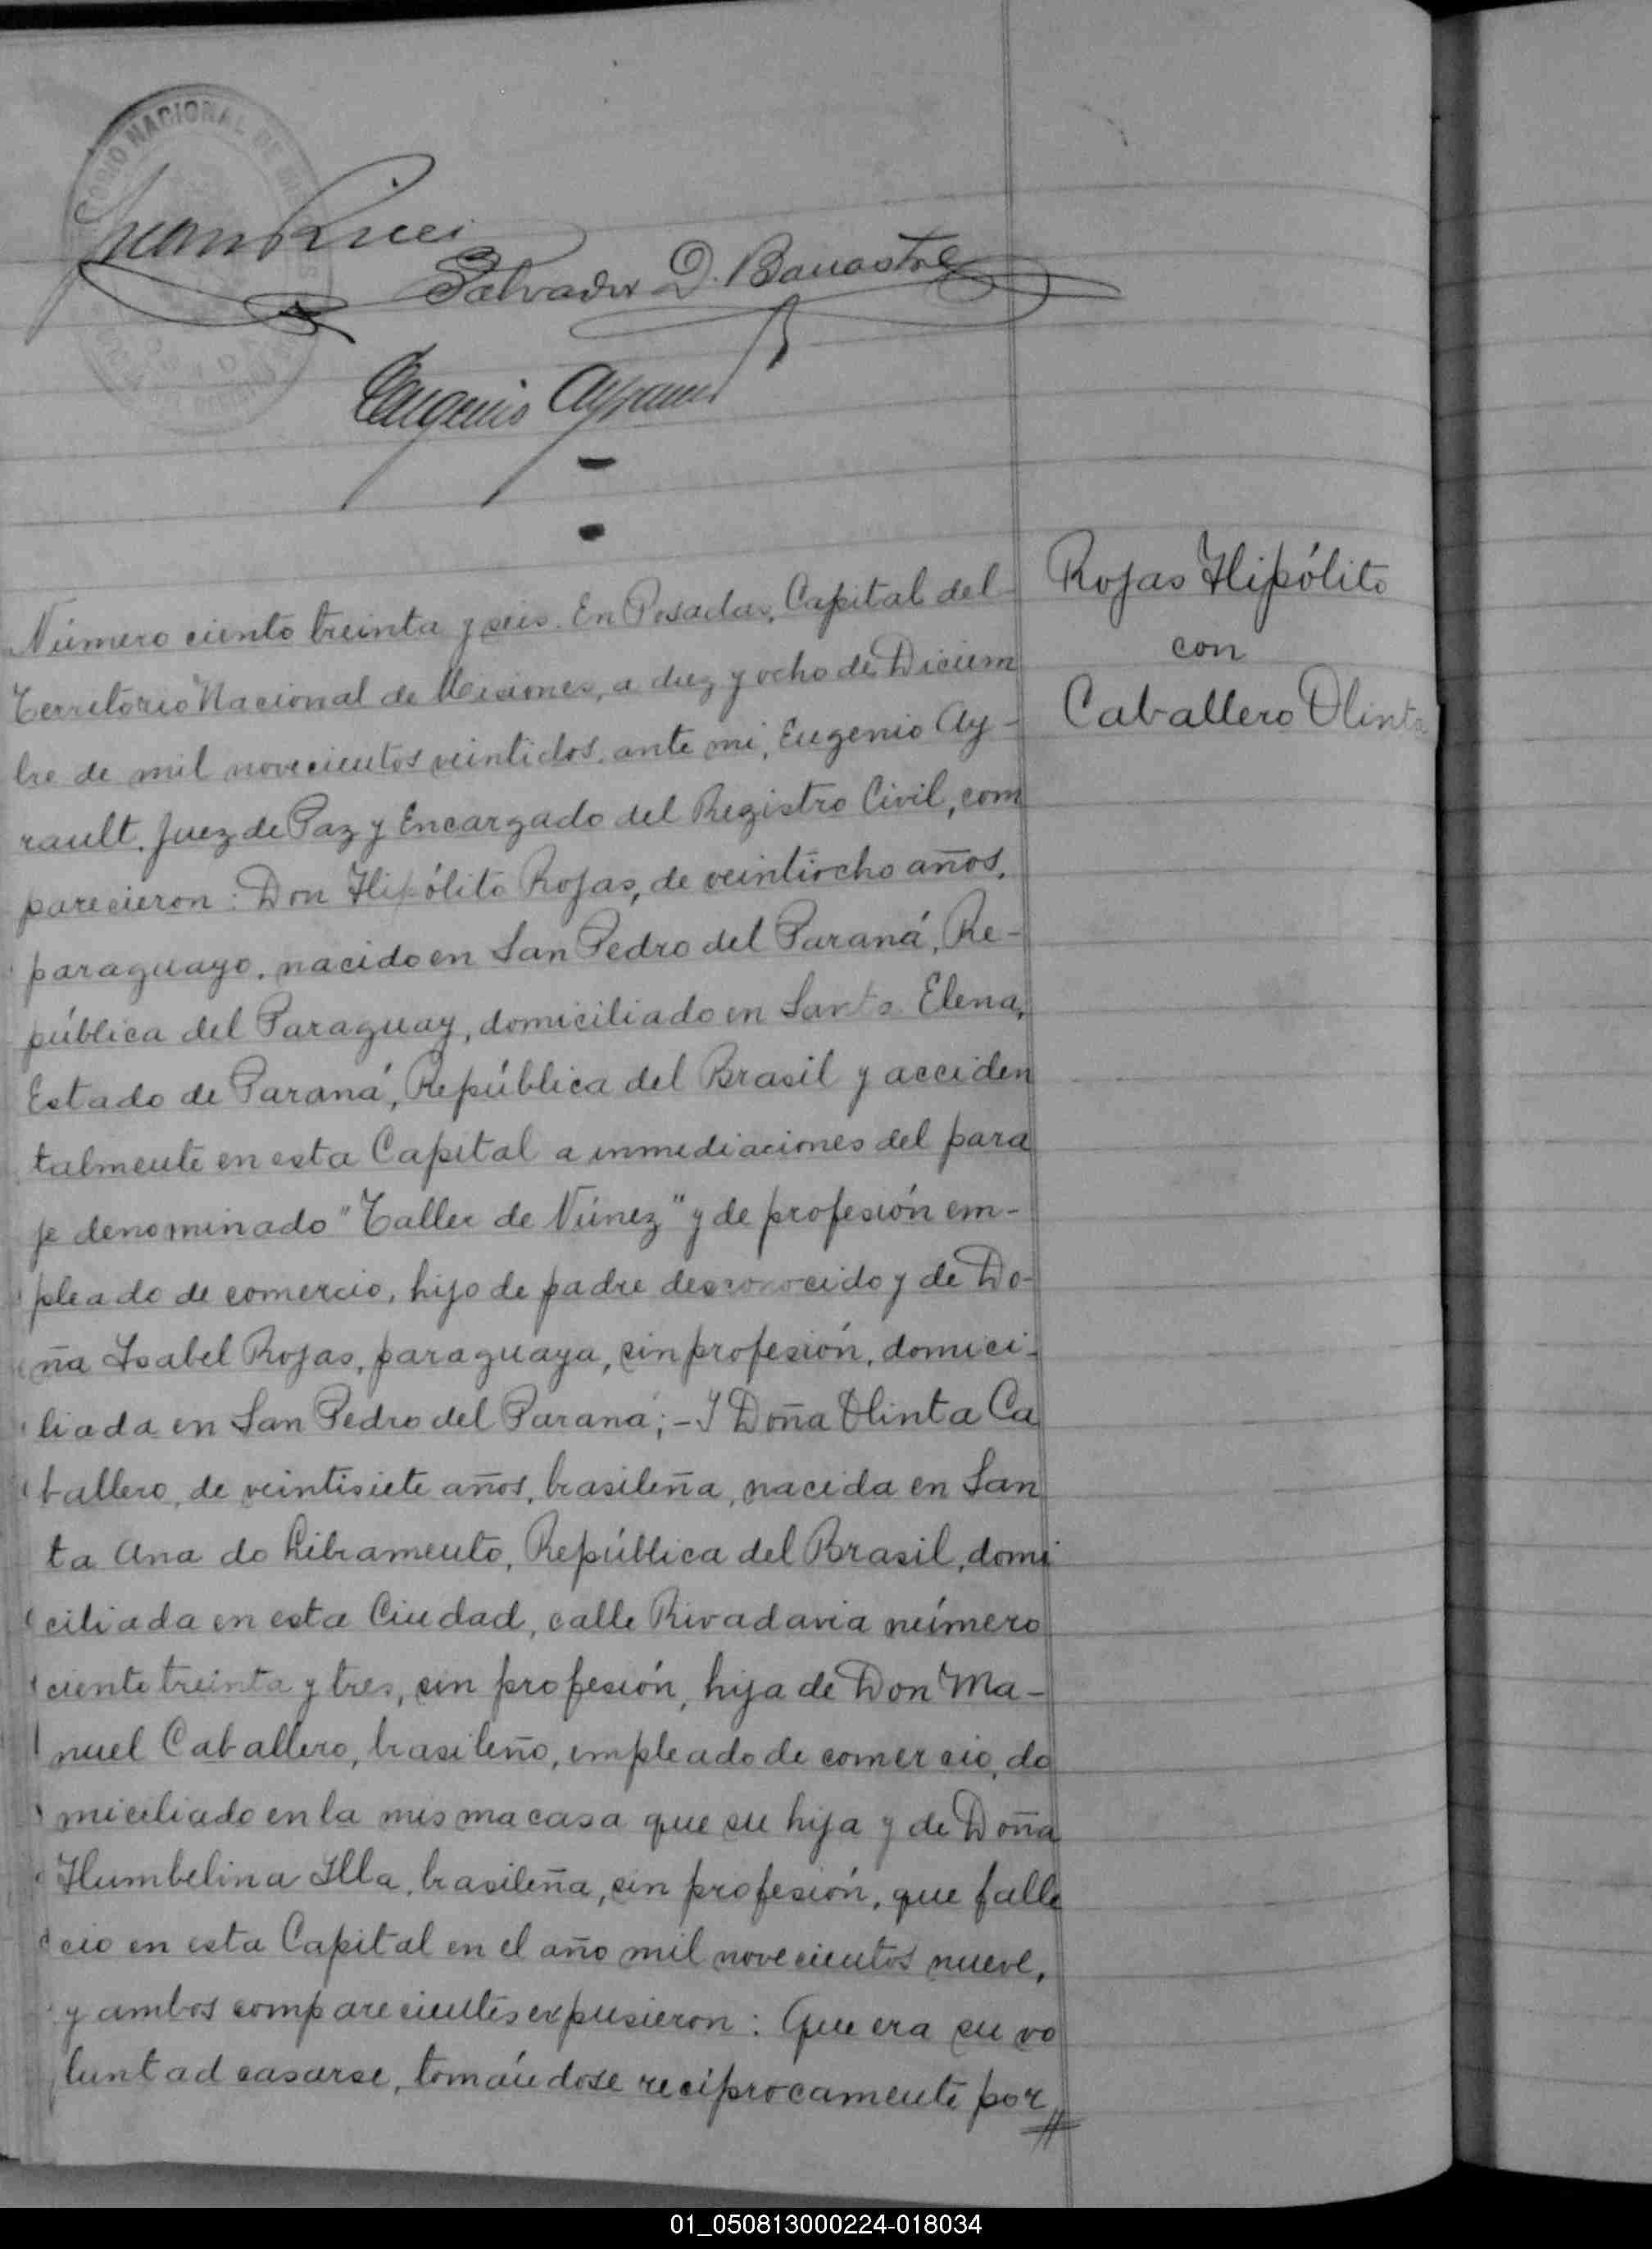 GOBIERNO NACIONAL DE MISIONES
Juan Ricci
Salvador D. Banastre
Eugenio Ayrault
Rojas Hipólito
con
Caballero Olinta
Número ciento treinta y seis. En Posadas, Capital del
Territorio Nacional de Misiones, a diez y ocho de Diciem
bre de mil novecientos veintidos, ante mi, Eugenio Ay-
rault. Juez de Paz y Encargado del Registro Civil, com
parecieron: Don Hipólito Rojas, de veintiocho años,
paraguayo, nacido en San Pedro del Paraná, Re-
pública del Paraguay, domiciliado en Santa Elena,
Estado de Paraná, República del Brasil y acciden
talmente en esta Capital a inmediaciones del para
je denominado "Taller de Núnez" y de profesión em-
pleado de comercio, hijo de padre desconocido y de Do-
ña Isabel Rojas, paraguaya, sin profesión, domici-
liada en San Pedro del Paraná; - Y Doña Olinta Ca
ballero, de veintisiete años, brasileña, nacida en San
ta Ana do Libramento, República del Brasil, domi
ciliada en esta Ciudad, calle Rivadavia número
ciento treinta y tres, sin profesión, hija de Don Ma-
nuel Caballero, brasileño, empleado de comercio, do
miciliado en la misma casa que su hija y de Doña
Humbelina Illa, brasileña, sin profesión, que falle
cio en esta Capital en el año mil novecientos nueve,
y ambos comparecientes expusieron: Que era su vo
luntad casarse, tomándose reciprocamente por //
01_050813000224-018034